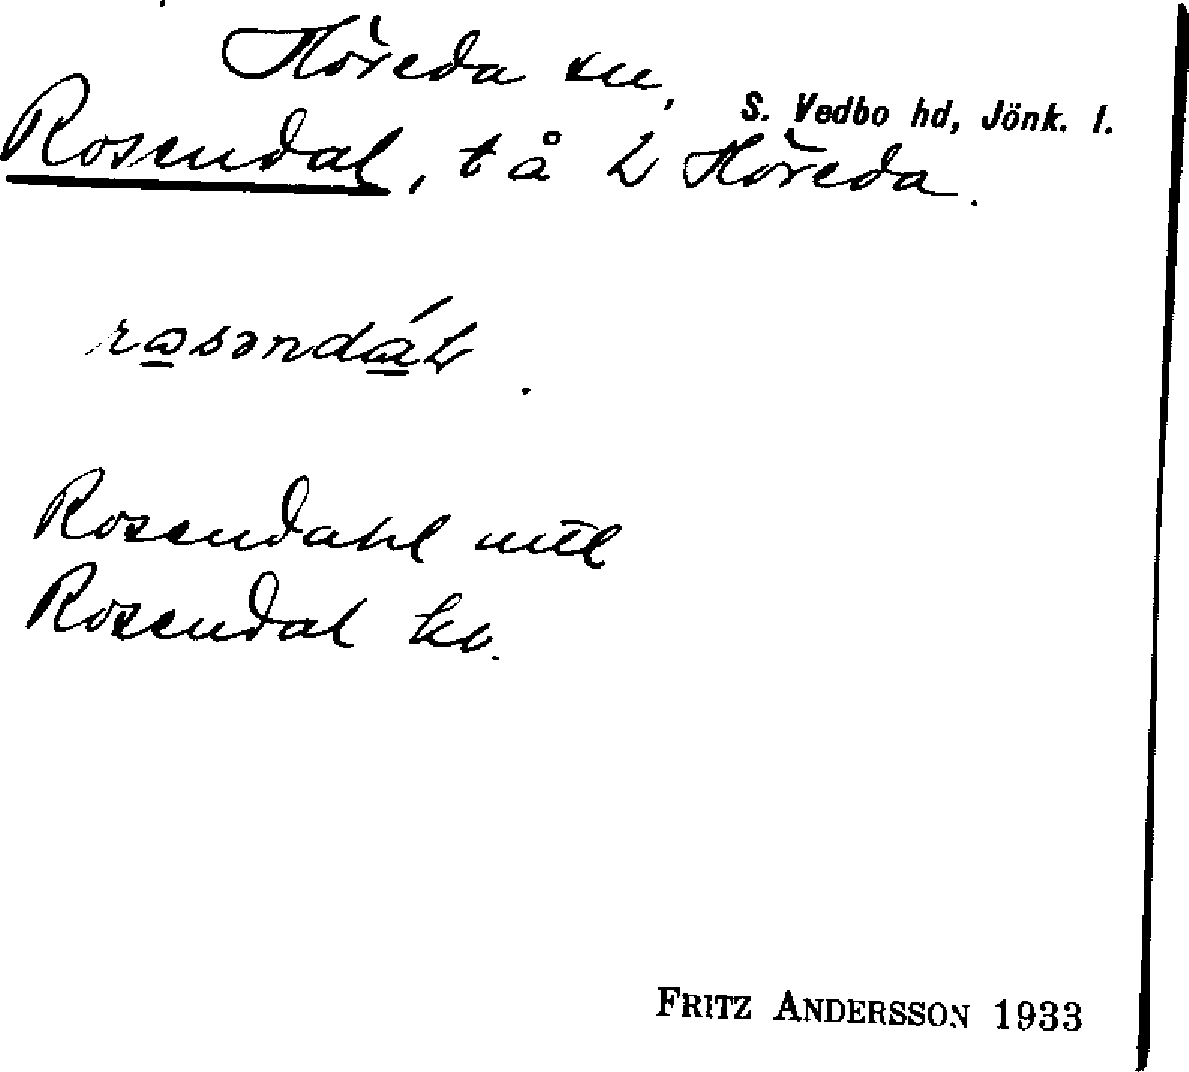 Höreda sn,
S. Vedbo hd, Jönk. l.
Rosendal, t å L Höreda.
Rosendahl mtl
Rosendal kb.
FRITZ ANDERSSON 1933